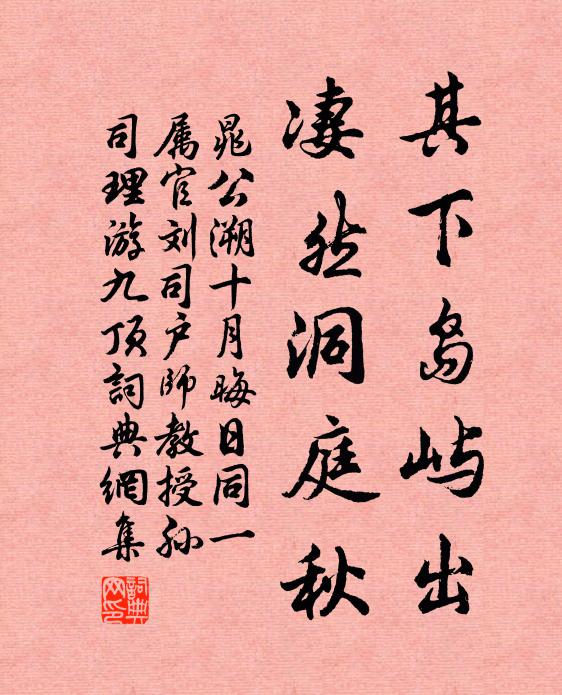 其下岛屿出
凄然洞庭秋
晁公溯十月晦日同一
属官刘司户师教授孙
司理游九顶詞典網集
詞典
网印